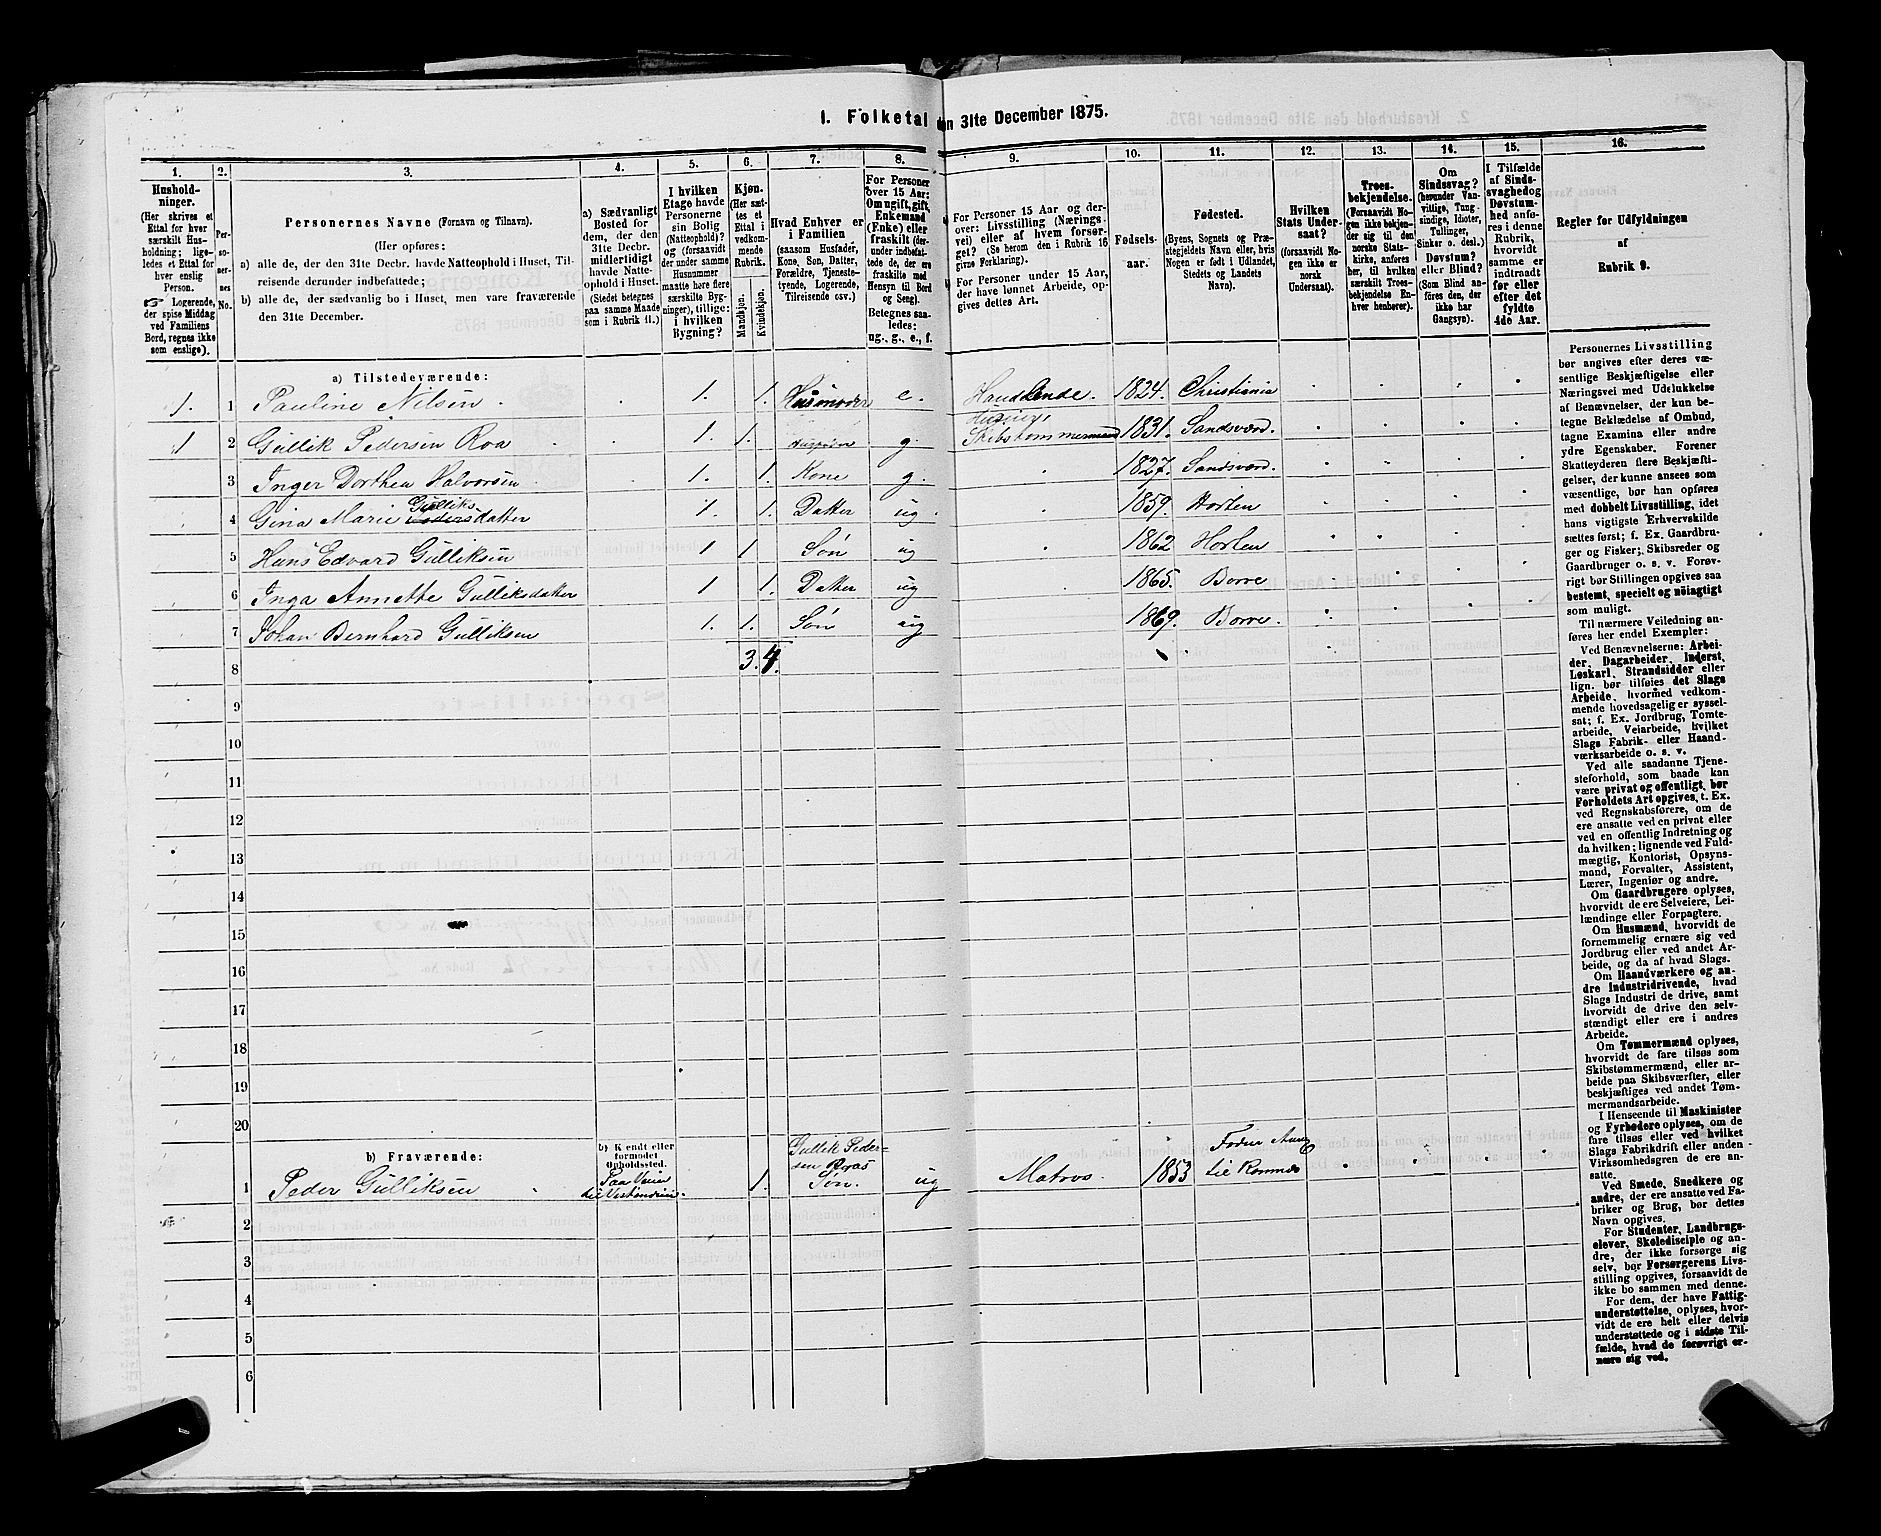 1. Folketal den 31te December 1875.
1.
Hushold-
ninger.
(Her skrives et
Ettal for hver
særskilt Hus-
holdning; lige-
ledes et Ettal for
hver enslig
Person.
☞ Logerende,
der spise Middag
ved Familiens
Bord, regnes ikke
som enslige).
2.
Per-
so-
ner-
nes
No.
3.
Personernes Navne (Fornavn og Tilnavn).
(Her opføres:
a) alle de, der den 31te Decbr. havde Natteophold i Huset, Til-
reisende derunder indbefattede;
b) alle de, der sædvanlig bo i Huset, men vare fraværende
den 31te December.
4.
a) Sædvanligt
Bosted for
dem, der den
31te Decbr.
midlertidigt
havde Natte-
ophold i Huset.
(Stedet betegnes
paa samme Maade
som i Rubrik 11.)
5.
I hvilken
Etage havde
Personerne
sin Bolig
(Natteophold)?
og (forsaavidt
der under samme
Husnummer
maatte høre flere
særskilte Byg-
ninger), tillige:
i hvilken
Bygning?
6.
Kjøn.
(Her sæt-
tes et
Ettal i
vedkom-
mende
Rubrik.
Mandkjøn.
Kvindekjøn.
7.
Hvad Enhver er
i Familien
(saasom Husfader,
Kone, Søn, Datter,
Forældre, Tjeneste-
tyende, Logerende,
Tilreisende osv.)
8.
For Personer
over 15 Aar:
Om ugift, gift,
Enkemand
(Enke) eller
fraskilt (der-
under indbefat-
tede de, der ere
fraskilte med
Hensyn til Bord
og Seng).
Betegnes saa-
ledes:
ug., g., e., f.
9.
For Personer 15 Aar og der-
over: Livsstilling (Nærings-
vei) eller af hvem forsør-
get? (Se herom den i Rubrik 16
givne Forklaring).
For Personer under 15 Aar,
der have lønnet Arbeide, op-
gives dettes Art.
10.
Fødsels-
aar.
11.
Fødested.
(Byens, Sognets og Præ-
stegjeldets Navn eller, hvis
Nogen er født i Udlandet,
Stedets og Landets
Navn).
12.
Hvilken
Stats Under-
saat?
(forsaavidt No-
gen ikke er
norsk
Undersaat).
13.
Troes-
bekjendelse.
(Forsaavidt No-
gen ikke bekjen-
der sig til den
norske Stats-
kirke, anføres
her, til hvilken
Troes-
bekjendelse En-
hver henhører).
14.
Om
Sindssvag?
(herunder Van-
vittige, Tung-
sindige, Idioter,
Tullinger,
Sinker o. desl.)
Døvstum?
eller Blind?
(Som Blind an-
føres den, der
ikke har
Gangsyn).
15.
I Tilfælde
af Sinds-
svaghed og
Døvstum-
hed anfø-
res i denne
Rubrik,
hvorvidt
samme er
indtraadt
før eller
efter det
fyldte
4de Aar.
16.
Regler for Udfyldningen
af
Rubrik 9.
a) Tilstedeværende:
1. 1 Pauline Nilsen 1. 1. Husmoder e. Handlende. 1824. Christiania
1 2 Gullik Pedersen Roa 1. 1. g. Skibstømmermand 1831. Sandsværd.
3 Inger Dorthea Halvorsen 1. 1. Kone g. 1827. Sandsværd.
4 Gina Marie Gulliksdatter 1. 1. Datter ug. 1859. Horten
5 Hans Edvard Gulliksen 1 1 Søn ug 1862 Horten
6 Inga Annette Gulliksdatter 1 1. Datter ug 1865. Borre
7 Johan Bernhard Gulliksen 1. 1. Søn ug 1869. Borre.
8 3. 4.
9
10
11
12
13
14
15
16
17
18
19
20
b) Fraværende:
b) Kjendt eller
formodet
Opholdssted.
1 Peder Gulliksen Paa Veien til Vestindien. 1. Gullik Peder-
sen Roas
Søn. ug Matros. 1853
2
3
4
5
6
Personernes Livsstilling
bør angives efter deres væ-
sentlige Beskjæftigelse eller
Næringsvei med Udelukkelse
af Benævnelser, der kun be-
tegne Beklædelse af Ombud,
tagne Examina eller andre
ydre Egenskaber. Forener
Skatteyderen flere Beskjæfti-
gelser, der kunne ansees som
væsentlige, bør han opføres
med dobbelt Livsstilling, idet
hans vigtigste Erhvervskilde
sættes først; f. Ex. Gaardbru-
ger og Fisker; Skibsreder og
Gaardbruger o. s. v. Forøv-
rigt bør Stillingen opgives saa
bestemt, specielt og nøiagtigt
som muligt.
Til nærmere Veiledning an-
føres her endel Exempler:
Ved Benævnelserne: Arbei-
der, Dagarbeider, Inderst,
Løskarl, Strandsidder eller
lign. bør tilføies det Slags
Arbeide, hvormed vedkom-
mende hovedsagelig er syssel-
sat; f. Ex. Jordbrug, Tomte-
arbeide, Veiarbeide, hvilket
Slags Fabrik- eller Haand-
værksarbeide o. s. v.
Ved alle saadanne Tjene-
steforhold, som baade kan
være privat og offentligt, bør
Forholdets Art opgives, t. Ex.
ved Regnskabsførere, om de
ere ansatte ved en privat eller
ved en offentlig Indretning og
da hvilken; lignende ved Fuld-
mægtig, Kontorist, Opsyns-
mand, Forvalter, Assistent,
Lærer, Ingeniør og andre.
Om Gaardbrugere oplyses,
hvorvidt de ere Selveiere, Lei-
lændinge eller Forpagtere.
Om Husmænd, hvorvidt de
fornemmelig ernære sig ved
Jordbrug eller ved andet Ar-
beide, og da af hvad Slags.
Om Haandværkere og an-
dre Industridrivende, hvad
Slags Industri de drive, samt
hvorvidt de drive den selv-
stændigt eller ere i andres
Arbeide.
Om Tømmermænd oplyses,
hvorvidt de fare tilsøs som
Skibstømmermænd, eller ar-
beide paa Skibsværfter, eller
beskjæftiges ved andet Tøm-
mermandsarbeide.
I Henseende til Maskinister
og Fyrbødere oplyses, om de
fare tilsøs eller ved hvilket
Slags Fabrikdrift eller anden
Virksomhedsgren de ere an-
satte.
Ved Smede, Snedkere og
andre, der ere ansatte ved Fa-
briker og Brug, bør dettes
Navn opgives.
For Studenter, Landbrugs-
elever, Skoledisciple og an-
dre, der ikke forsørge sig
selv, bør Forsørgerens Livs-
stilling opgives, forsaavidt de
ikke bo sammen med denne.
For dem, der have Fattig-
understøttelse, oplyses, hvor-
vidt de ere helt eller delvis
understøttede og i sidste Til-
fælde, hvad de forøvrigt er-
nære sig ved.